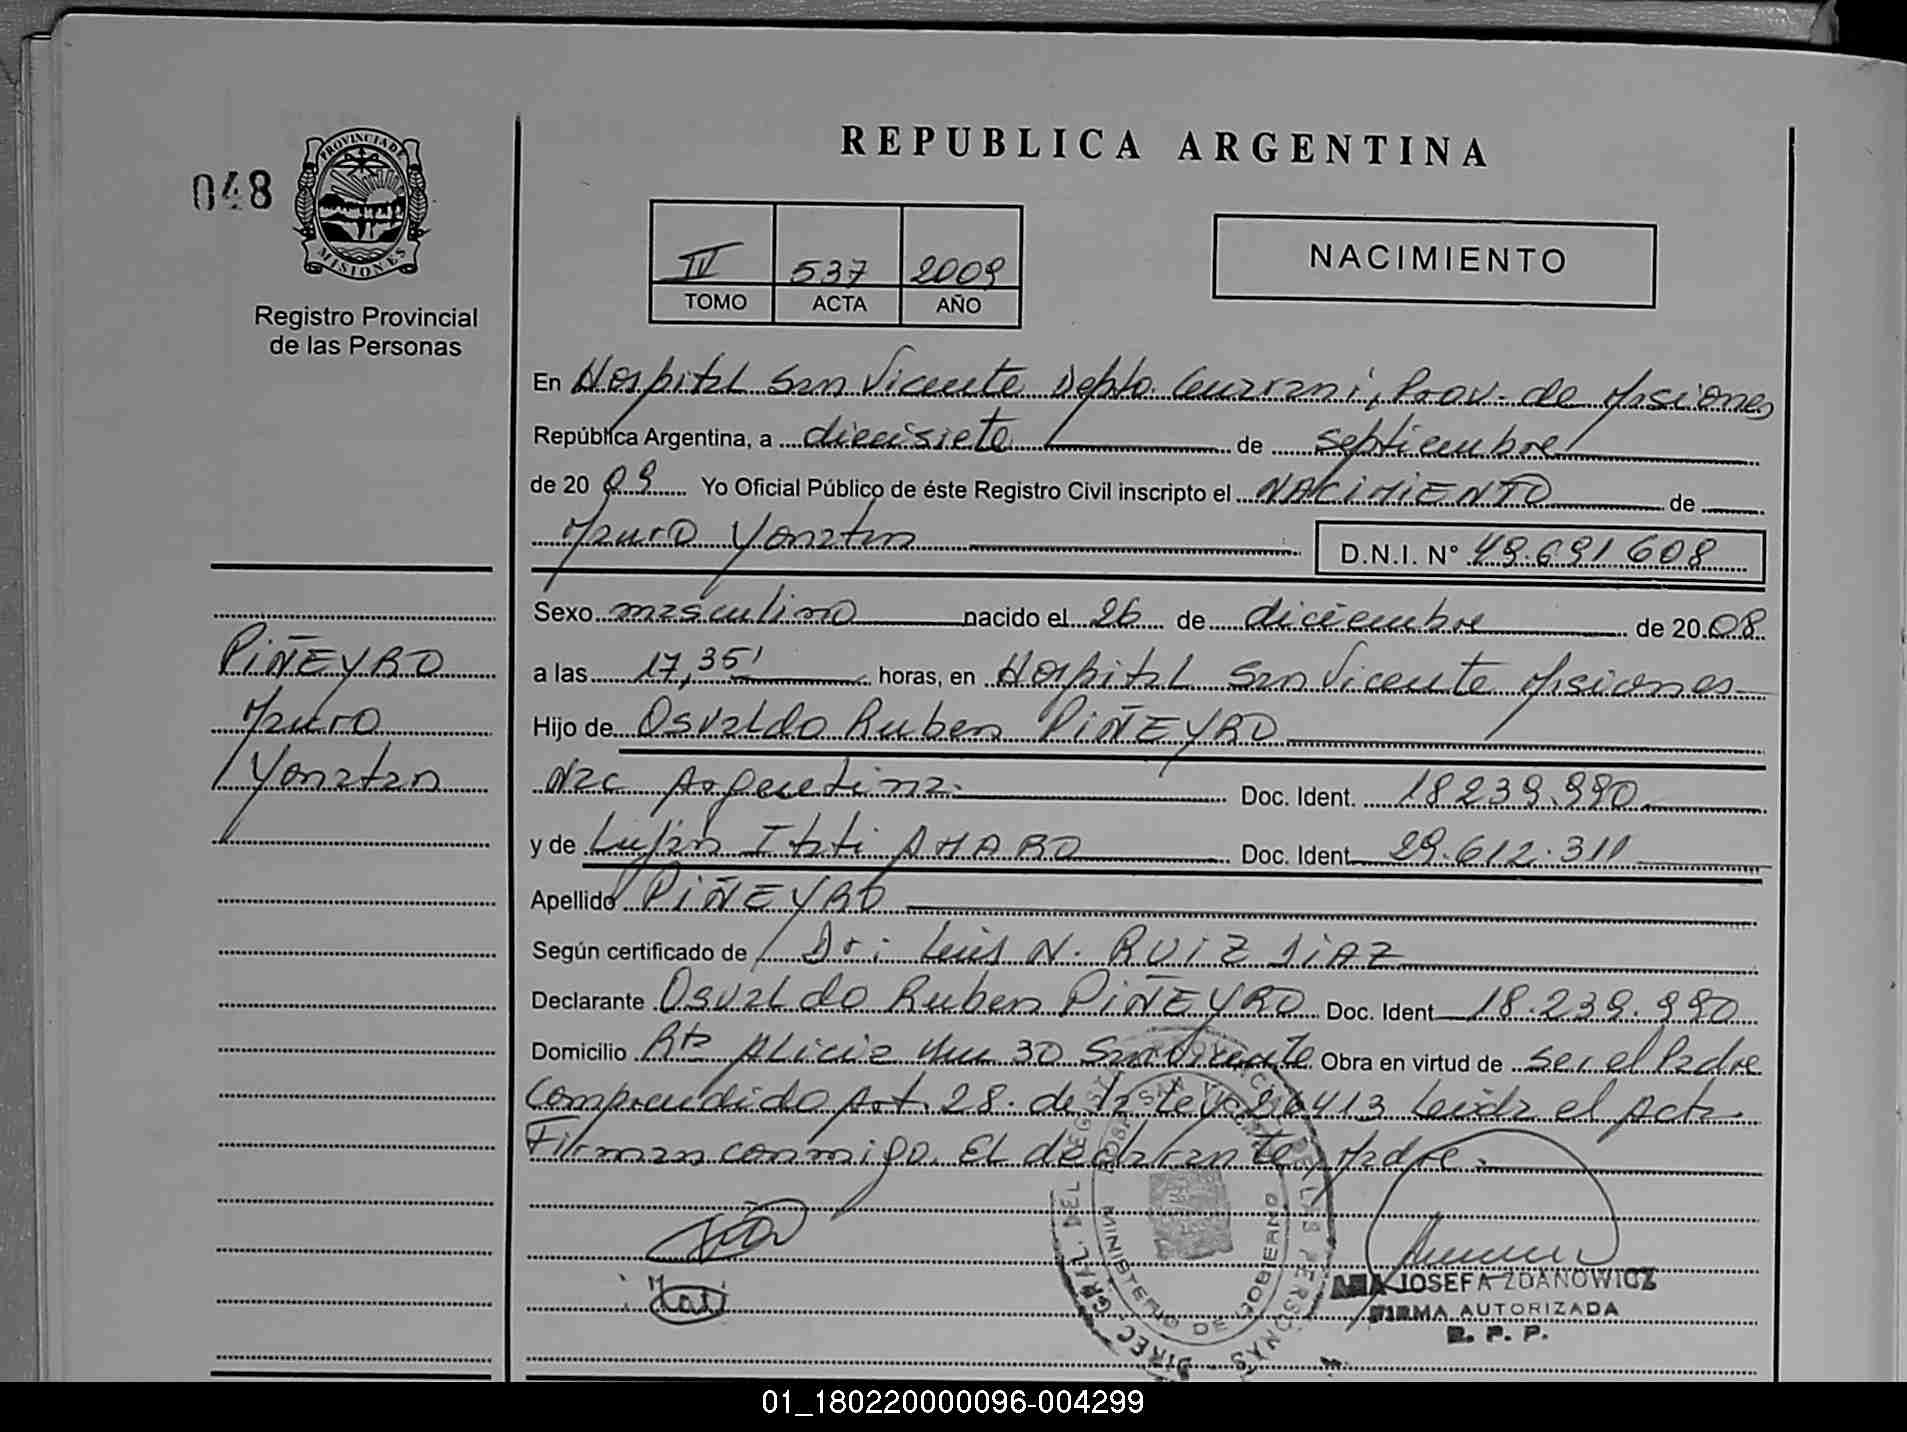 REPUBLICA ARGENTINA
048
PROVINCIA DE
MISIONES
Registro Provincial
de las Personas
IV 537 2009
TOMO ACTA AÑO
NACIMIENTO
En Hospital San Vicente Depto. Guarani, Prov. de Misiones
República Argentina, a diecisiete de septiembre
de 20 09 Yo Oficial Público de éste Registro Civil inscripto el NACIMIENTO de
Mauro Yonatan D.N.I. N° 49.691608
Sexo masculino nacido el 26 de diciembre de 20 08
a las 17,35' horas, en Hospital San Vicente Misiones
Hijo de Osvaldo Ruben PIÑEYRO
Nac Argentina. Doc. Ident. 18239.990
y de Luján Itati AMARO Doc. Ident 29.612.311
Apellido PIÑEYRO
Según certificado de Dr: Luis N. RUIZ DIAZ
Declarante Osvaldo Ruben PIÑEYRO Doc. Ident 18.239.990
Domicilio Rta Alicia Km 30 San Vicente Obra en virtud de ser el Padre
Comprendido Art. 28. de la Ley 26413 Leída el Acta
Firman conmigo. El declarante, Madre.
PIÑEYRO
Mauro
Yonatan
DIREC. GRAL. DEL REGISTRO PROVINCIAL DE LAS PERSONAS
MINISTERIO DE GOBIERNO
JOSEFA ZDANOWICZ
FIRMA AUTORIZADA
R. P. P.
01_180220000096-004299